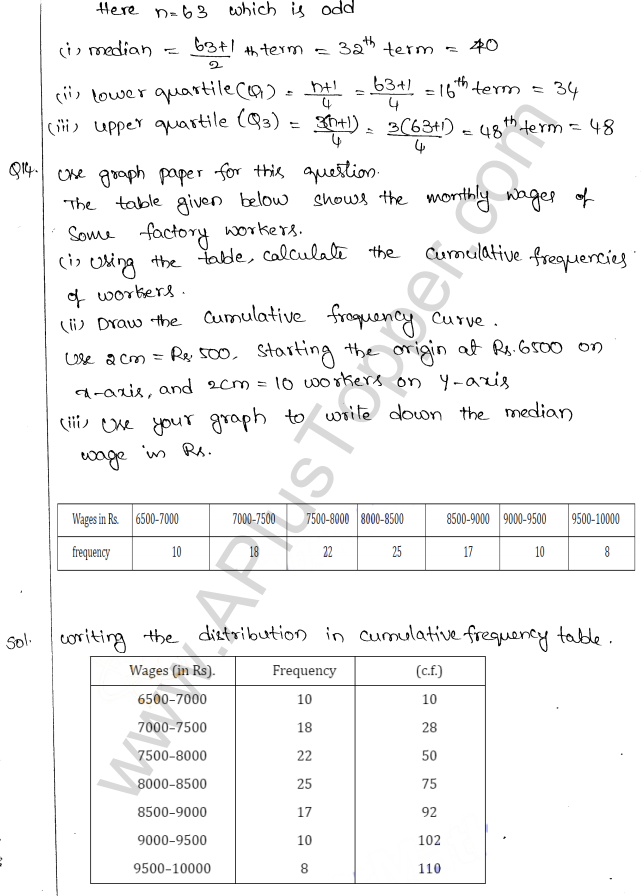 Here n=63 which is odd
(i) median = 63+1/2 th term = 32th term = 40
(ii) lower quartile (Q1) = n+1/4 = 63+1/4 = 16th term = 34
(iii) upper quartile (Q3) = 3(n+1)/4 = 3(63+1)/4 = 48th term = 48
Q14. Use graph paper for this question.
The table given below shows the monthly wages of
Some factory workers.
(i) Using the table, calculate the cumulative frequencies
of workers.
(ii) Draw the cumulative frequency curve.
Use 2cm = Rs.500, starting the origin at Rs.6500 on
x-axis, and 2cm = 10 workers on y-axis
(iii) Use your graph to write down the median
wage in Rs.
Wages in Rs. 6500-7000 7000-7500 7500-8000 8000-8500 8500-9000 9000-9500 9500-10000
frequency 10 18 22 25 17 10 8
Sol. Writing the distribution in cumulative frequency table.
Wages (in Rs). Frequency (c.f.)
6500-7000 10 10
7000-7500 18 28
7500-8000 22 50
8000-8500 25 75
8500-9000 17 92
9000-9500 10 102
9500-10000 8 110
www.APlusTopper.com